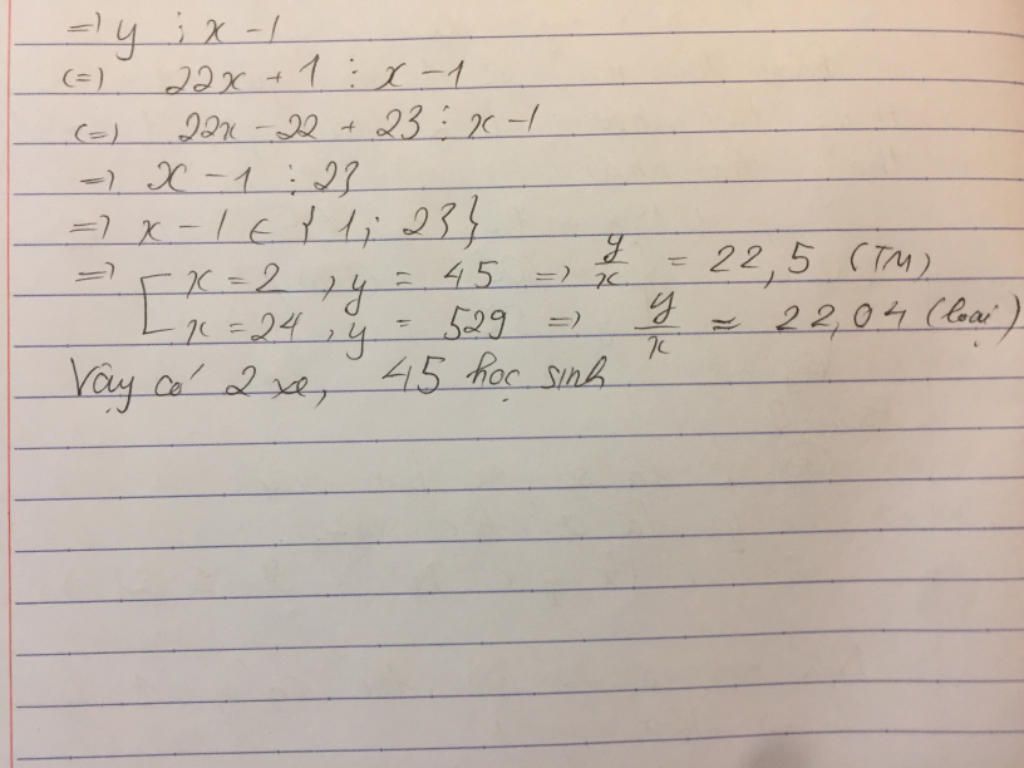 => y ⋮ x - 1
(=) 22x + 1 ⋮ x - 1
(=) 22x - 22 + 23 ⋮ x - 1
=> x - 1 ⋮ 23
=> x - 1 ∈ { 1; 23}
=> [ x = 2 , y = 45 => y/x = 22,5 (TM)
x = 24 , y = 529 => y/x ≈ 22,04 (loại)
Vậy có 2 xe, 45 học sinh